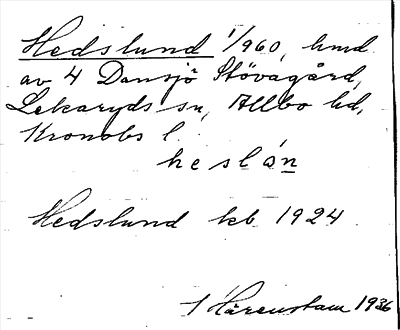 Hedslund 1/960, hmd
av 4 Dansjö Stövagård,
Lekaryds sn, Allbo hd,
Kronobs l.
heslán
Hedslund kb 1924
1 Härenstam 1936